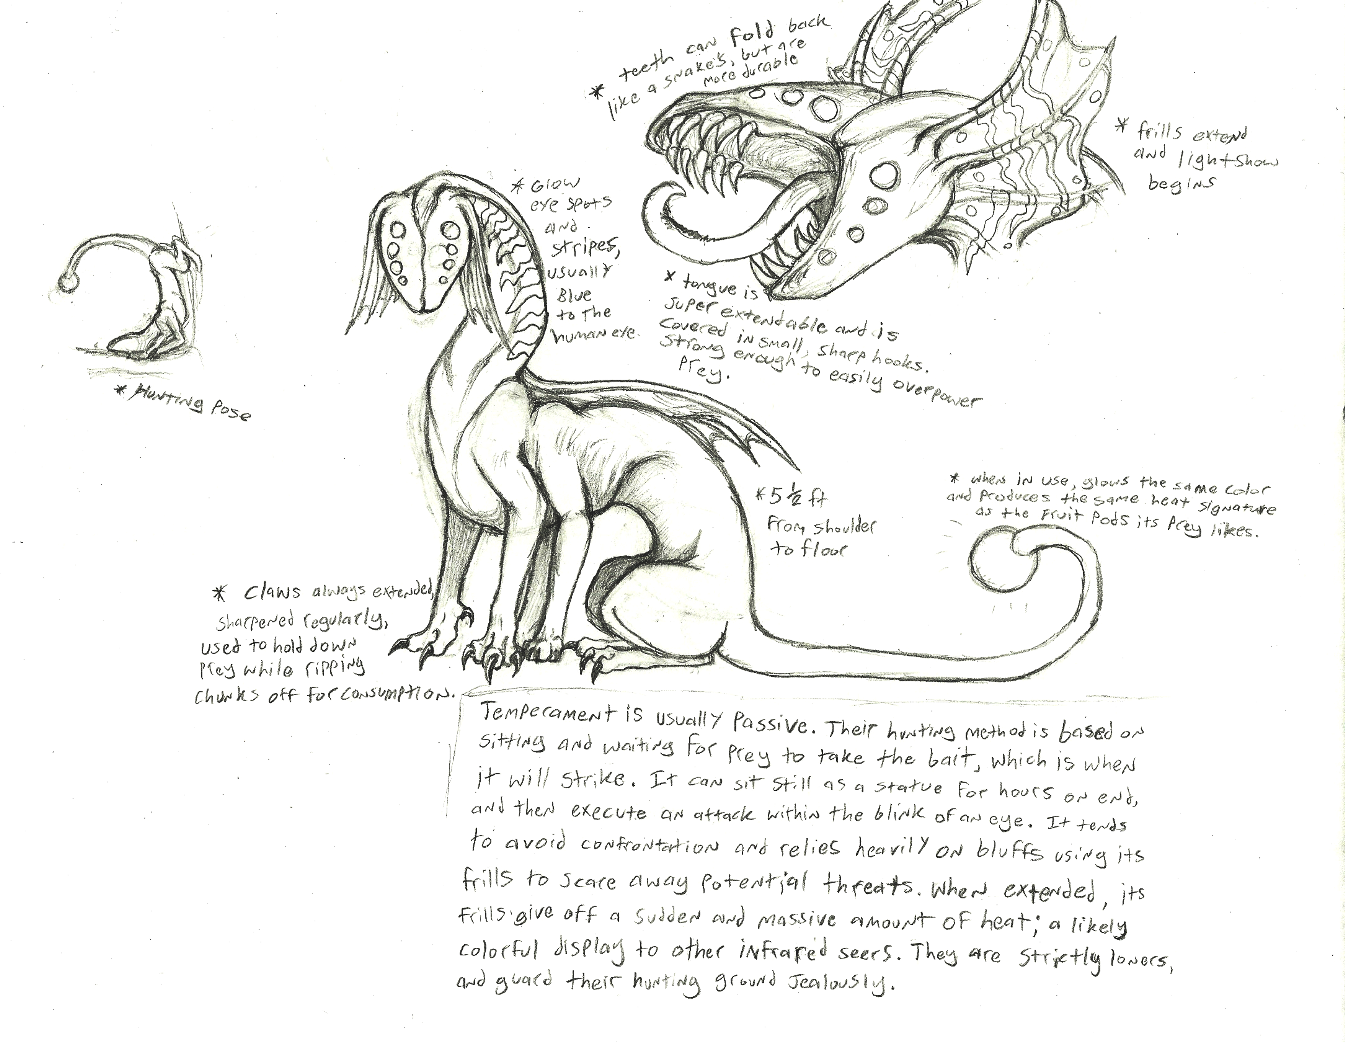 * teeth can fold back
like a snake's, but are
more durable
* frills extend
and lightshow
begins
* Glow
eye spots
and
stripes,
usually
Blue
to the
human eye.
* tongue is
super extendable and is
covered in small, sharp hooks.
Strong enough to easily overpower
Prey.
* Hunting Pose
* 5 1/2 ft
from shoulder
to floor
* when in use, glows the same color
and produces the same heat signature
as the fruit pods its prey likes.
* Claws always extended,
sharpened regularly,
used to hold down
Prey while ripping
chunks off for consumption.
Temperament is usually passive. Their hunting method is based on
sitting and waiting for prey to take the bait, which is when
it will strike. It can sit still as a statue for hours on end,
and then execute an attack within the blink of an eye. It tends
to avoid confrontation and relies heavily on bluffs using its
frills to scare away potential threats. When extended, its
frills give off a sudden and massive amount of heat; a likely
colorful display to other infrared seers. They are strictly loners,
and guard their hunting ground jealously.